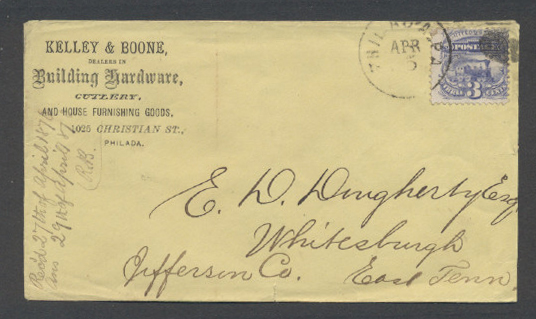 KELLEY & BOONE,
DEALERS IN
Building Hardware,
CUTLERY,
AND HOUSE FURNISHING GOODS,
1025 CHRISTIAN ST.,
PHILADA.
APR
POSTAGE
3
E. D. Dougherty Esq
Whitesburgh
Jefferson Co. East Tenn.
Recd 27th of April 187
Ans 29th of April
R.B.